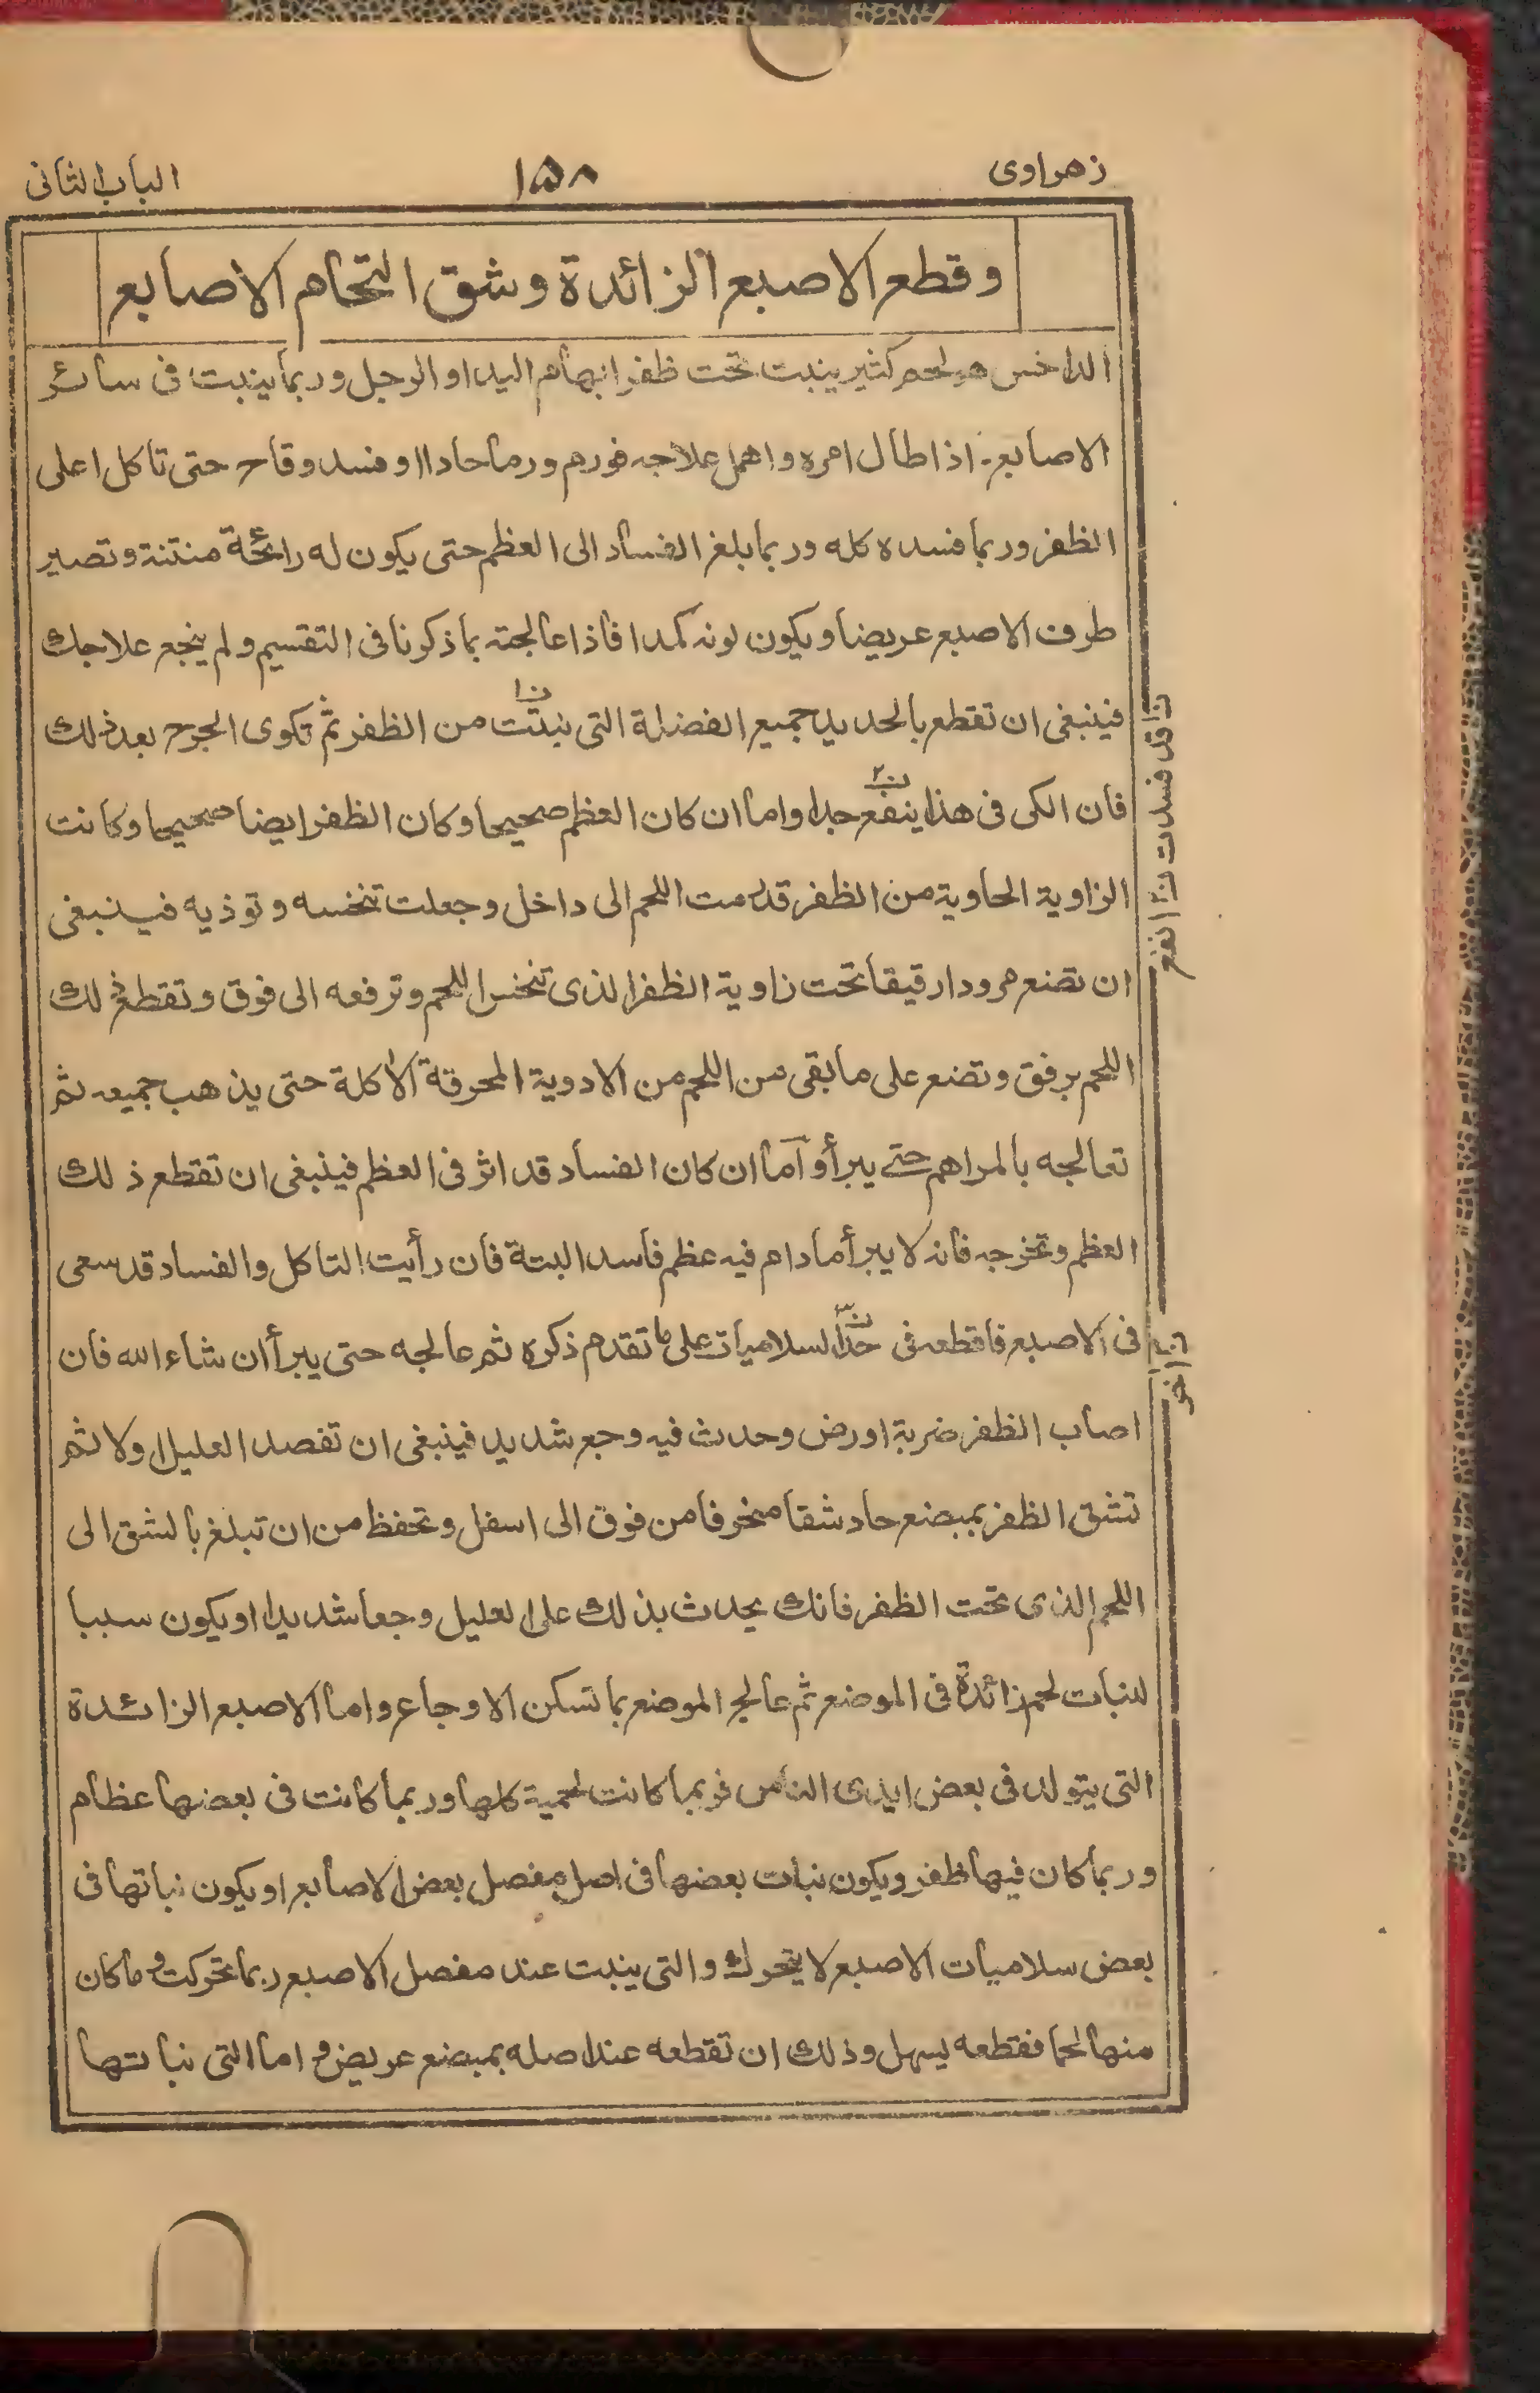 زهراوى ١٥٨ الباب الثانى
وقطع الاصبع الزائدة وشق التحام الاصابع
الداخس هو لحم كثير ينبت تحت ظفر ابهام اليد او الرجل وربما ينبت فى سائر
الاصابع اذا طال امره واهمل علاجه فورم ورما حادا او فسد وقاح حتى تاكل اعلى
الظفر وربما فسده كله وربما بلغ الفساد الى العظم حتى يكون له رائحة منتنة وتصير
طرف الاصبع عريضا ويكون لونه كمدا فاذا عالجته بما ذكرنا فى التقسيم ولم ينجع علاجك
فينبغى ان تقطع بالحديد جميع الفضلة التى نبتت من الظفر ثم تكوى الجرح بعد ذلك
فان الكى فى هذا ينفع جدا واما ان كان العظم صحيحا وكان الظفر ايضا صحيحا وكانت
الزاوية الحاوية من الظفر قد رمت اللحم الى داخل وجعلت تنخسه وتوذيه فينبغى
ان تضع مرودا رقيقا تحت زاوية الظفر الذى تنخس اللحم وترفعه الى فوق وتقطع ذلك
اللحم برفق وتضع على ما بقى من اللحم من الادوية المحرقة الاكلة حتى يذهب جميعه ثم
تعالجه بالمراهم حتى يبرأ وأما ان كان الفساد قد اثر فى العظم فينبغى ان تقطع ذلك
العظم وتخرجه فانه لا يبرأ مادام فيه عظم فاسد البتة فان رأيت التاكل والفساد قد سعى
فى الاصبع فاقطعه فى حد السلاميات على ما تقدم ذكره ثم عالجه حتى يبرأ ان شاء الله فان
اصاب الظفر ضربة او رض وحدث فيه وجع شديد فينبغى ان تفصد العليل اولا ثم
تشق الظفر بمبضع حاد شقا منحرفا من فوق الى اسفل وتحفظ من ان تبلغ بالشق الى
اللحم الذى تحت الظفر فانك يحدث بذلك على العليل وجعا شديدا او يكون سببا
لنبات لحم زائدة فى الموضع ثم عالج الموضع بما تسكن الاوجاع واما الاصبع الزائدة
التى يتولد فى بعض ايدى الناس فربما كانت لحمية كلها وربما كانت فى بعضها عظام
وربما كان فيها ظفر ويكون نبات بعضها فى اصل مفصل بعض الاصابع او يكون نباتها فى
بعض سلاميات الاصبع لا يتحرك والتى ينبت عند مفصل الاصبع ربما تحركت وما كان
منها لحما فقطعه يسهل وذلك ان تقطعه عند اصله بمبضع عريض و اما التى نباتها
ن١ قد فسدت ن٢ انفع
ن٣ اخر